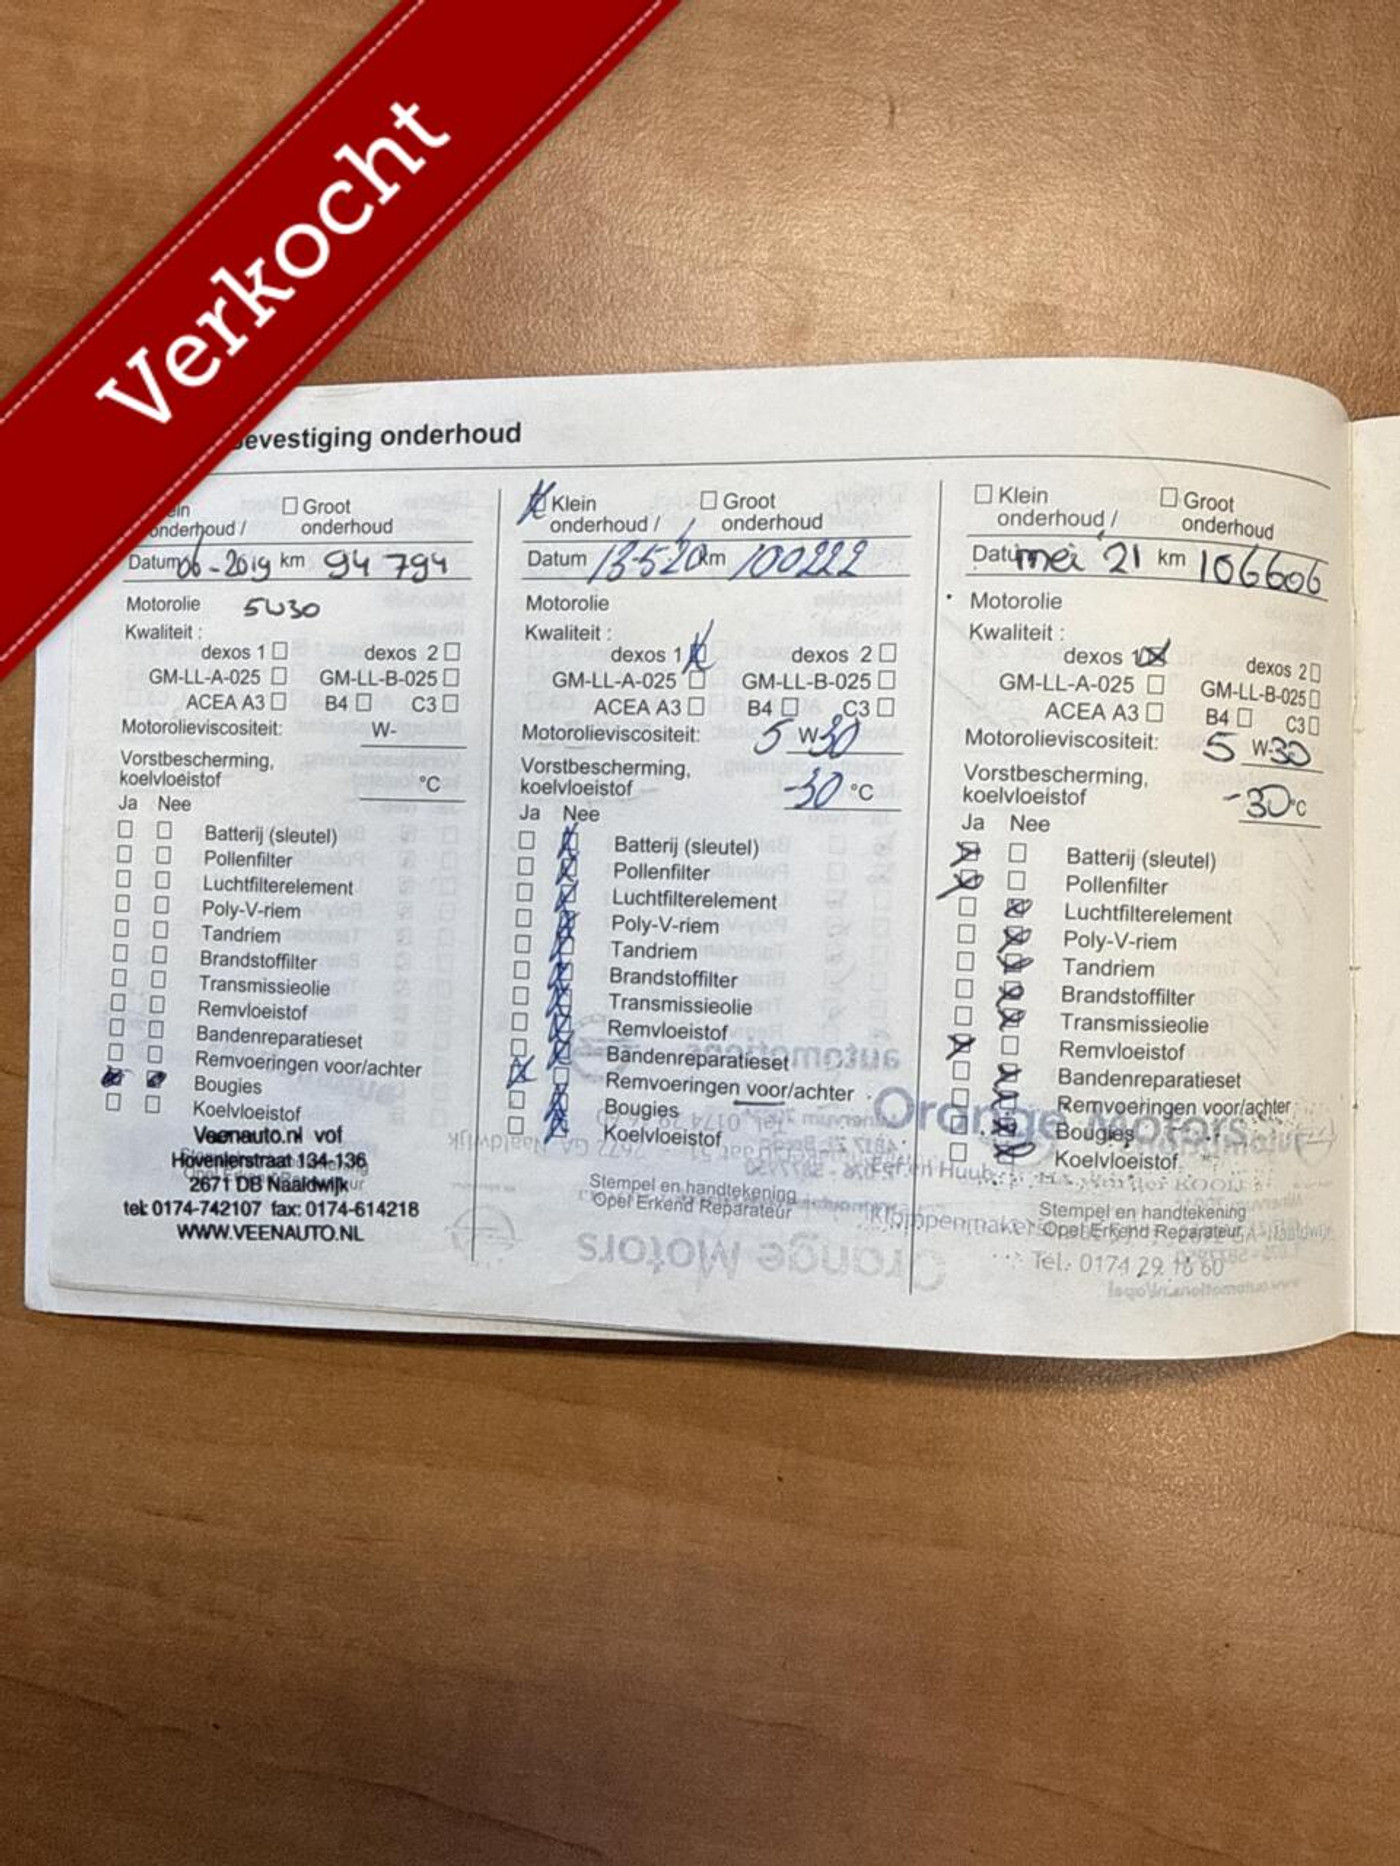 Verkocht
Bevestiging onderhoud
Klein onderhoud / Groot onderhoud
Datum 06-2019 km 94 794
Motorolie 5W30
Kwaliteit :
dexos 1 dexos 2
GM-LL-A-025 GM-LL-B-025
ACEA A3 B4 C3
Motorolieviscositeit: W-
Vorstbescherming,
koelvloeistof °C
Ja Nee
Batterij (sleutel)
Pollenfilter
Luchtfilterelement
Poly-V-riem
Tandriem
Brandstoffilter
Transmissieolie
Remvloeistof
Bandenreparatieset
Remvoeringen voor/achter
Bougies
Koelvloeistof
Veenauto.nl vof
Hovenierstraat 134-136
2671 DB Naaldwijk
tel: 0174-742107 fax: 0174-614218
WWW.VEENAUTO.NL
Klein onderhoud / Groot onderhoud
Datum 13-5-20 km 100222
Motorolie
Kwaliteit :
dexos 1 dexos 2
GM-LL-A-025 GM-LL-B-025
ACEA A3 B4 C3
Motorolieviscositeit: 5 W-30
Vorstbescherming,
koelvloeistof -30 °C
Ja Nee
Batterij (sleutel)
Pollenfilter
Luchtfilterelement
Poly-V-riem
Tandriem
Brandstoffilter
Transmissieolie
Remvloeistof
Bandenreparatieset
Remvoeringen voor/achter
Bougies
Koelvloeistof
Stempel en handtekening
Opel Erkend Reparateur
Klein onderhoud / Groot onderhoud
Datum mei '21 km 106606
Motorolie
Kwaliteit :
dexos 1 dexos 2
GM-LL-A-025 GM-LL-B-025
ACEA A3 B4 C3
Motorolieviscositeit: 5 W-30
Vorstbescherming,
koelvloeistof -30 °C
Ja Nee
Batterij (sleutel)
Pollenfilter
Luchtfilterelement
Poly-V-riem
Tandriem
Brandstoffilter
Transmissieolie
Remvloeistof
Bandenreparatieset
Remvoeringen voor/achter
Bougies
Koelvloeistof
Orange Motors
Stempel en handtekening
Opel Erkend Reparateur
Tel.: 0174 29 16 60